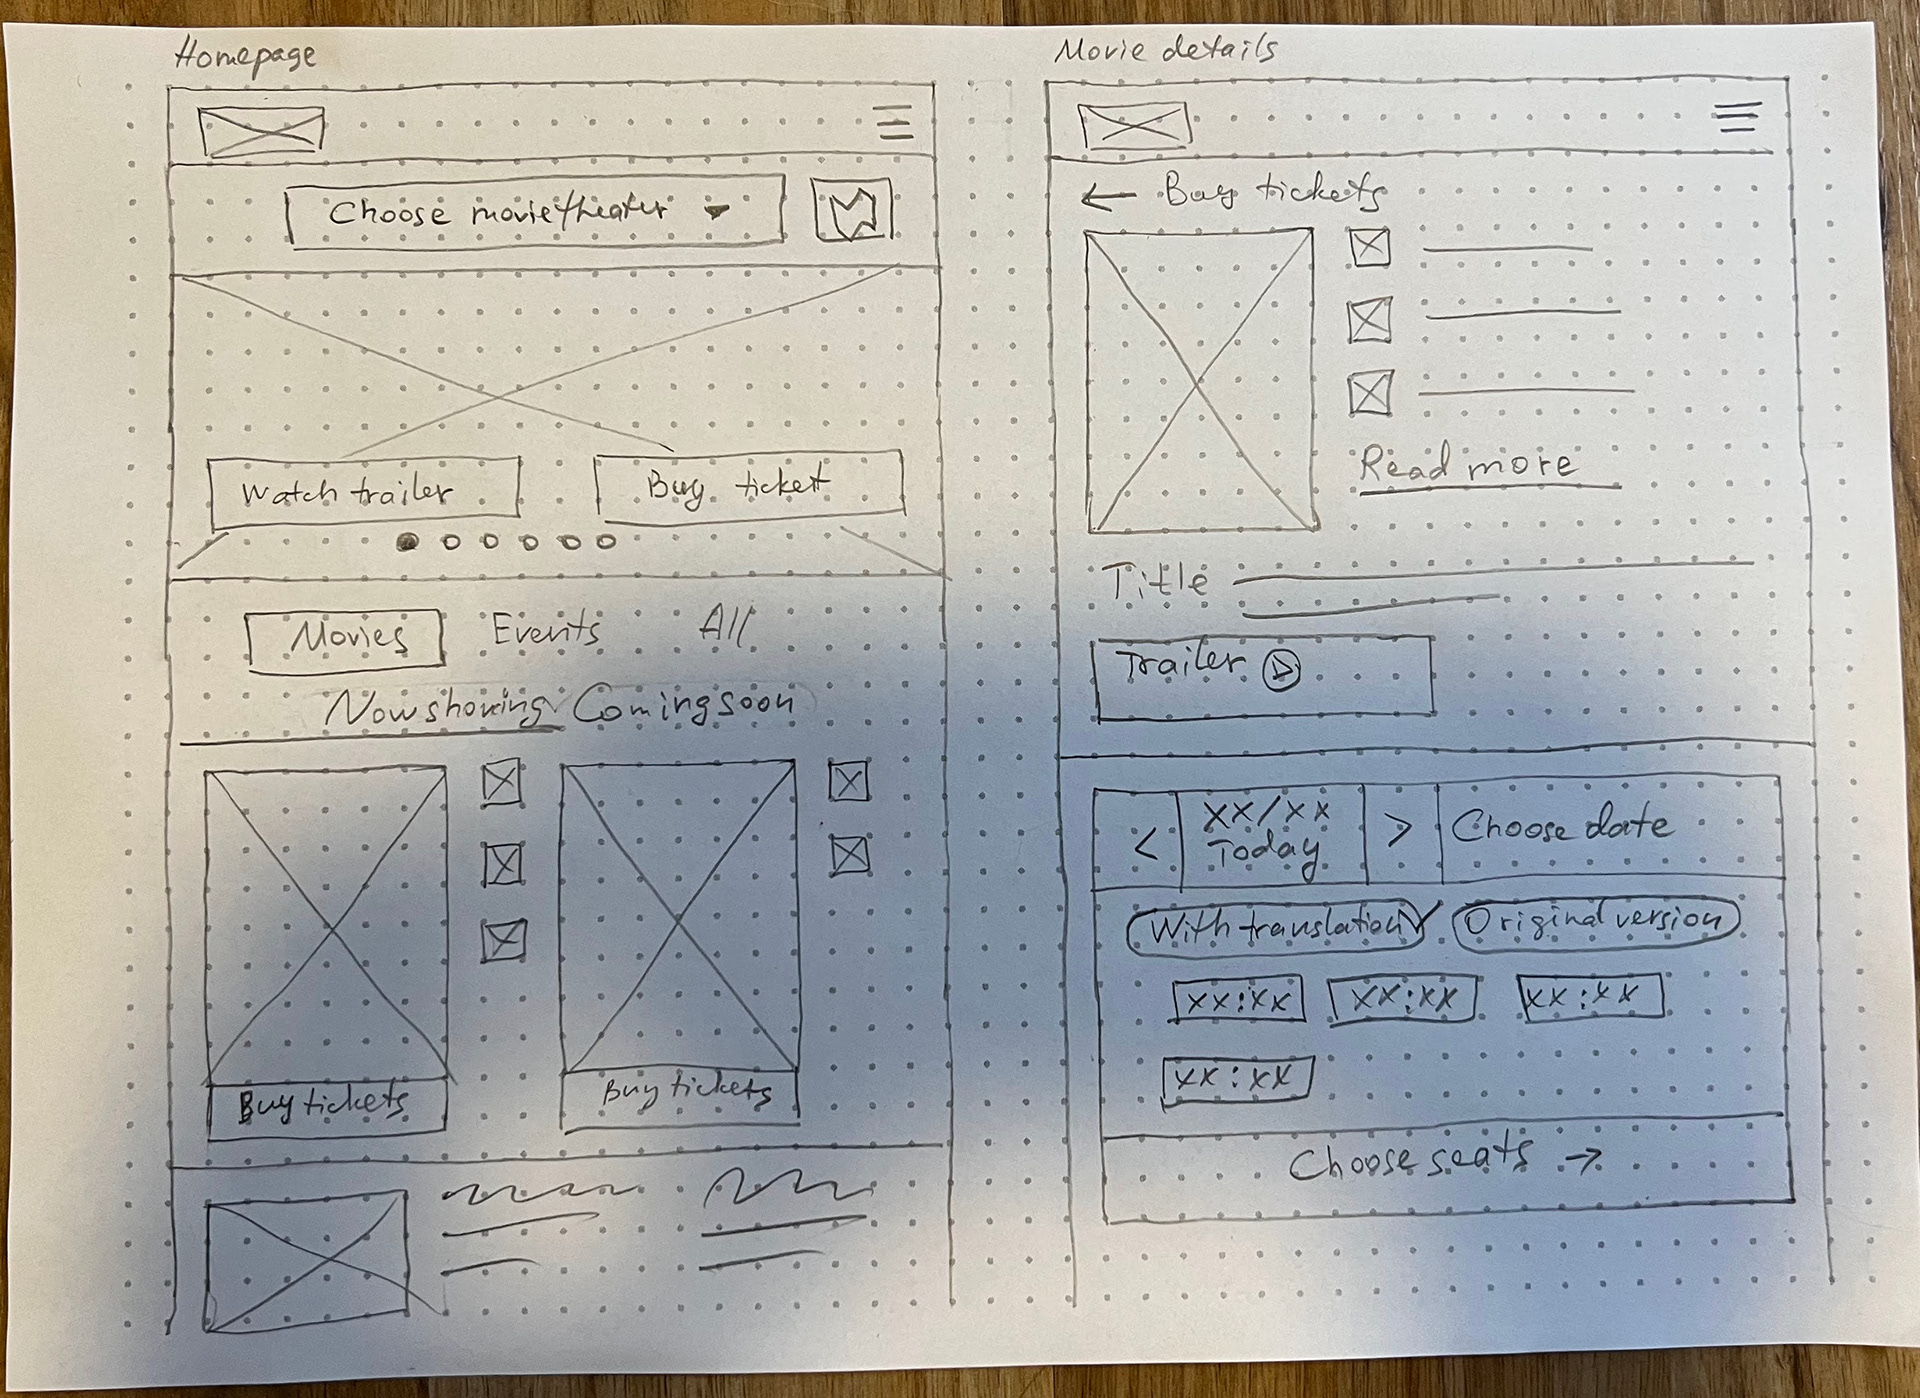 Homepage
Choose movietheater
Watch trailer
Buy ticket
Movies Events All
Now showing Coming soon
Buy tickets
Buy tickets
Movie details
← Buy tickets
Read more
Title
Trailer
< xx/xx > Choose date
Today
With translation ✓ Original version
xx:xx xx:xx xx:xx
xx:xx
Choose seats →